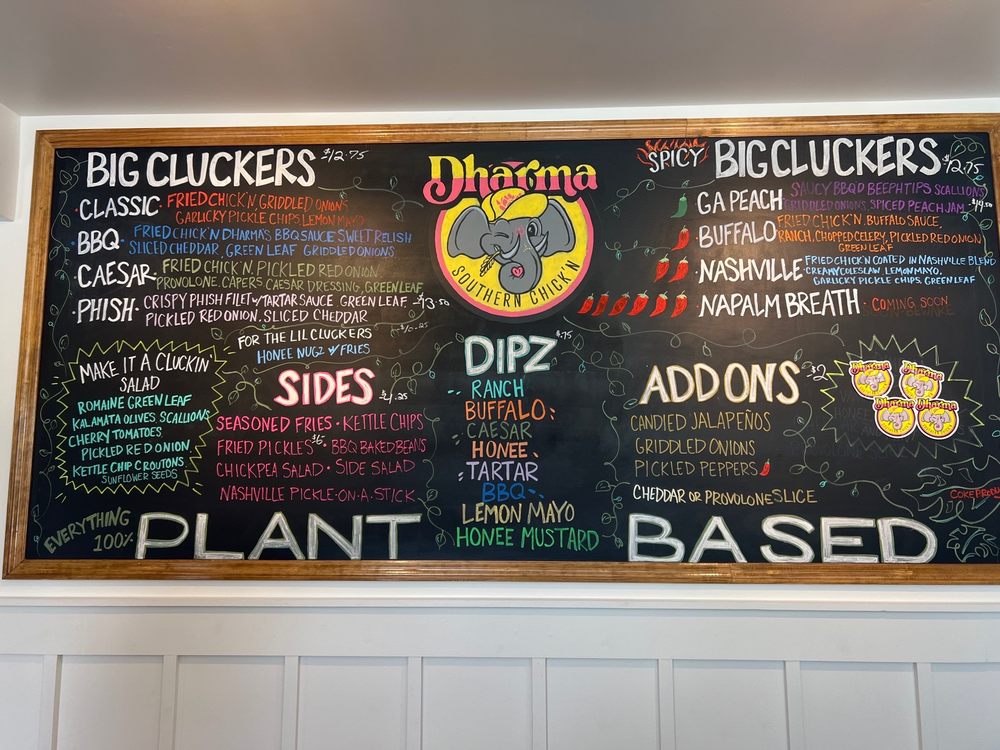 BIG CLUCKERS $12.75
CLASSIC · FRIED CHICK'N, GRIDDLED ONION,
GARLICKY PICKLE CHIPS, LEMON MAYO
BBQ · FRIED CHICK'N DHARMA'S BBQ SAUCE SWEET RELISH
SLICED CHEDDAR, GREEN LEAF GRIDDLED ONIONS
CAESAR · FRIED CHICK'N, PICKLED RED ONION,
PROVOLONE, CAPERS CAESAR DRESSING, GREEN LEAF
PHISH · CRISPY PHISH FILET w/ TARTAR SAUCE GREEN LEAF $13.50
PICKLED RED ONION, SLICED CHEDDAR
FOR THE LIL CLUCKERS $10.25
HONEE NUGZ w/ FRIES
MAKE IT A CLUCKIN
SALAD
ROMAINE GREEN LEAF
KALAMATA OLIVES, SCALLIONS
CHERRY TOMATOES,
PICKLED RED ONION,
KETTLE CHIP CROUTONS,
SUNFLOWER SEEDS
SIDES $4.25
SEASONED FRIES · KETTLE CHIPS
FRIED PICKLES $6 · BBQ BAKED BEANS
CHICKPEA SALAD · SIDE SALAD
NASHVILLE PICKLE-ON-A-STICK
Dharma
SOUTHERN CHICK'N
DIPZ $.75
RANCH
BUFFALO
CAESAR
HONEE
TARTAR
BBQ
LEMON MAYO
HONEE MUSTARD
SPICY BIG CLUCKERS $12.75
GA PEACH SAUCY BBQ'D BEEPH TIPS SCALLIONS
GRIDDLED ONIONS, SPICED PEACH JAM · $14.50
BUFFALO FRIED CHICK'N, BUFFALO SAUCE,
RANCH, CHOPPED CELERY, PICKLED RED ONION
GREEN LEAF
NASHVILLE FRIED CHICK'N COATED IN NASHVILLE BLEND
CREAMY COLESLAW LEMON MAYO,
GARLICKY PICKLE CHIPS, GREEN LEAF
NAPALM BREATH · COMING SOON
ADD ONS $2
CANDIED JALAPEÑOS
GRIDDLED ONIONS
PICKLED PEPPERS
CHEDDAR OR PROVOLONE SLICE
Dharma
Dharma
Dharma
Dharma
EVERYTHING
100%
PLANT BASED